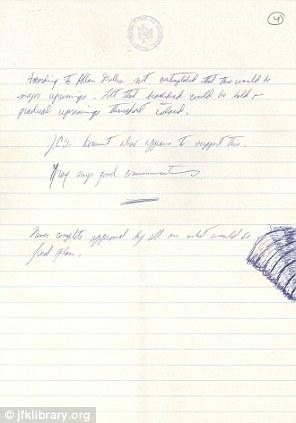 4
According To Allen Dulles not contemplated that there would be
major uprisings. All that could be held &
gradual uprisings throughout island.
J.C.S. document also appears to support this.
says good communications
Never complete approval by all on what would be
final plan.
© jfklibrary.org